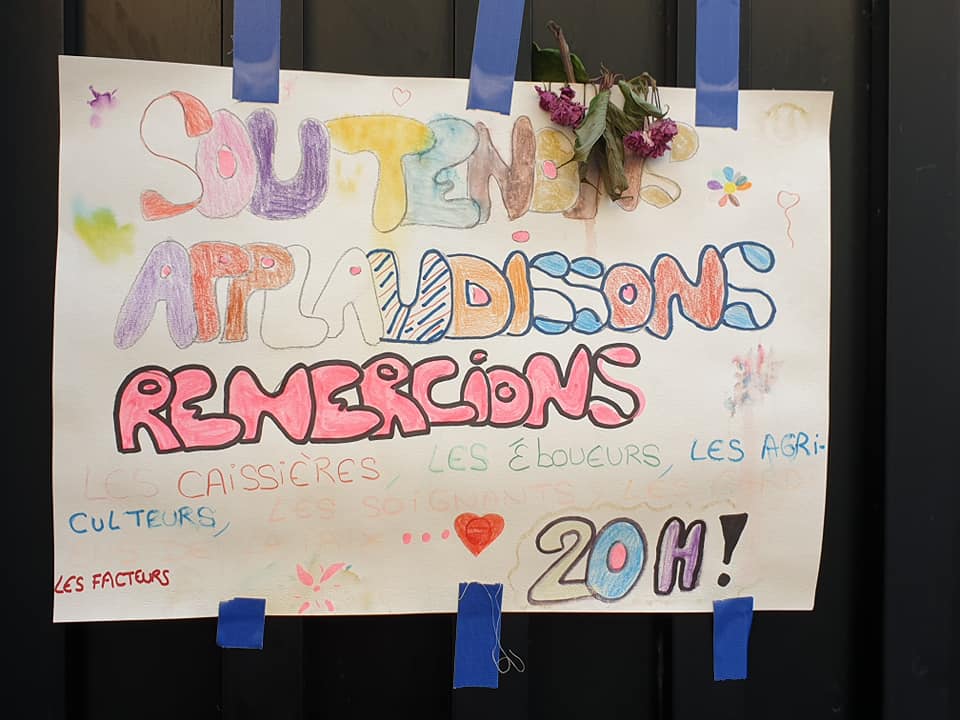 SOUTENONS
APPLAUDISSONS
REMERCIONS
LES CAISSIÈRES, LES ÉBOUEURS, LES AGRI-
CULTEURS, LES SOIGNANTS, LES GARDI
ENS DE LA PAIX ... 20H!
LES FACTEURS